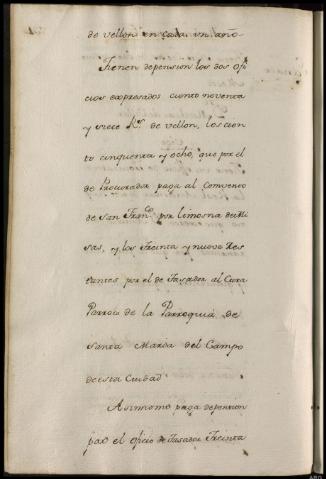 de vellon en cada un año
Tienen de pension los dos ofi
cios expresados ciento noventa
y siete R.s de vellon, los cien
to cinquenta y ocho, que por el
de Procurador paga al Convento
de San Fran.co por limosna de Mi
sas, y los treinta y nueve res
tantes por el de Tasador al Cura
Parroco de la Parroquia de
Santa Maria del Campo
de esta Ciudad
Asimismo paga de pension
por el oficio de Tasador treinta